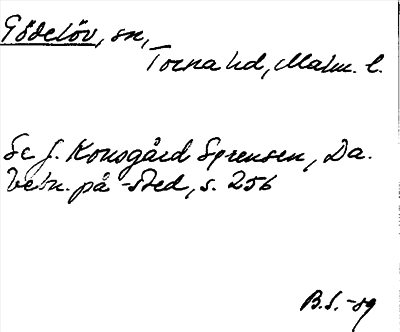 Gödelöv, sn,
Torna hd, Malm. l.
Se J. Kousgård Sørensen, Da.
bebn. på -sted, s. 256
B.S. -59